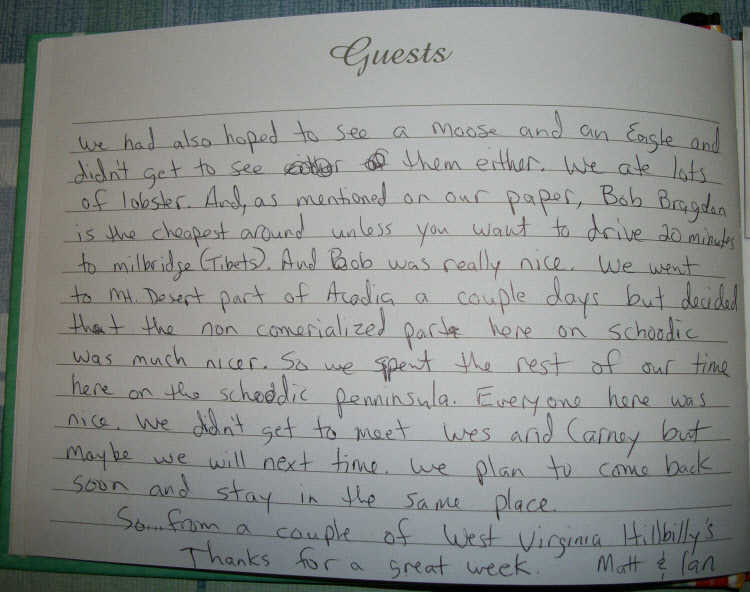 Guests
We had also hoped to see a moose and an Eagle and
didn't get to see them either. We ate lots
of lobster. And, as mentioned on our paper, Bob Bragdon
is the cheapest around unless you want to drive 20 minutes
to milbridge (Tibets). And Bob was really nice. We went
to Mt. Desert part of Acadia a couple days but decided
that the non comerialized part here on schoodic
was much nicer. So we spent the rest of our time
here on the schoodic penninsula. Everyone here was
nice. We didn't get to meet Wes and Carney but
maybe we will next time. We plan to come back
soon and stay in the same place.
So... from a couple of West Virginia Hillbilly's
Thanks for a great week. Matt & Ian